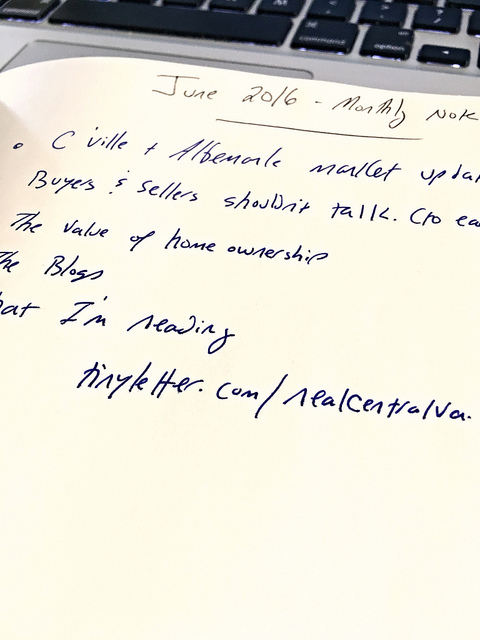 June 2016 - Monthly Note
• C'ville + Albemarle market updat
Buyers & Sellers shouldn't talk. (to ea
The value of home ownership
The Blogs
hat I'm reading
tinyletter.com/realcentralva.
command
option